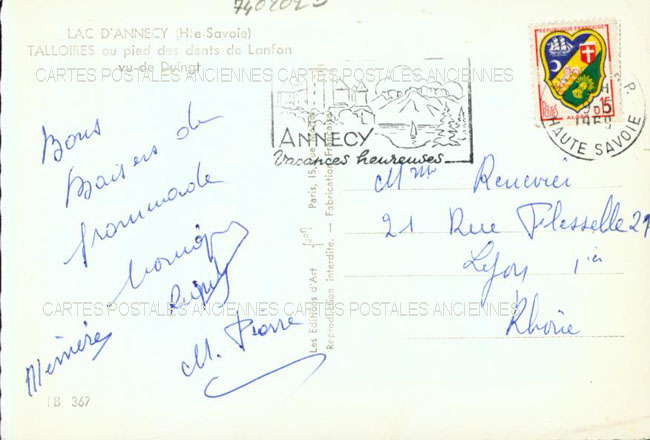 7402025
LAC D'ANNECY (Hte-Savoie)
TALLOIRES au pied des dents de Lanfon
vu de Duingt
CARTES POSTALES ANCIENNES CARTES POSTALES ANCIENNES
REPUBLIQUE FRANÇAISE
0,15
ALGER
ANNECY
Vacances heureuses
1969
HAUTE SAVOIE
Bons
Baisers de
promenade
M. Pierre
Mémère
Mme
21 Rue Flesselle 21
Lyon 1ier
Rhône
Les Editions d'Art
Paris, 15, rue
Reproduction interdite. — Fabrication Française
CARTES POSTALES ANCIENNES CARTES POSTALES ANCIENNES
IB 367